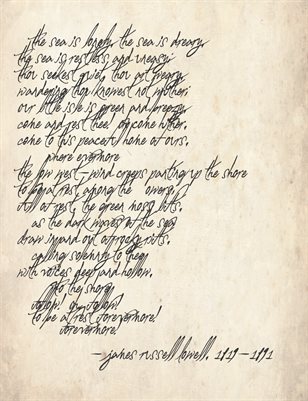 the sea is lonely, the sea is dreary,
the sea is restless and uneasy;
thou seekest quiet, thou art weary,
wandering thou knowest not whither;
our little isle is green and breezy,
come and rest thee! oh come hither,
come to this peaceful home of ours,
where evermore
the low west-wind creeps panting up the shore
to be at rest among the flowers;
full of rest, the green moss lifts,
as the dark waves of the sea
draw in and out of rocky rifts,
calling solemnly to thee
with voices deep and hollow,
to the shore
follow! oh, follow!
to be at rest forevermore!
forevermore!
—james russell lowell, 1819—1891